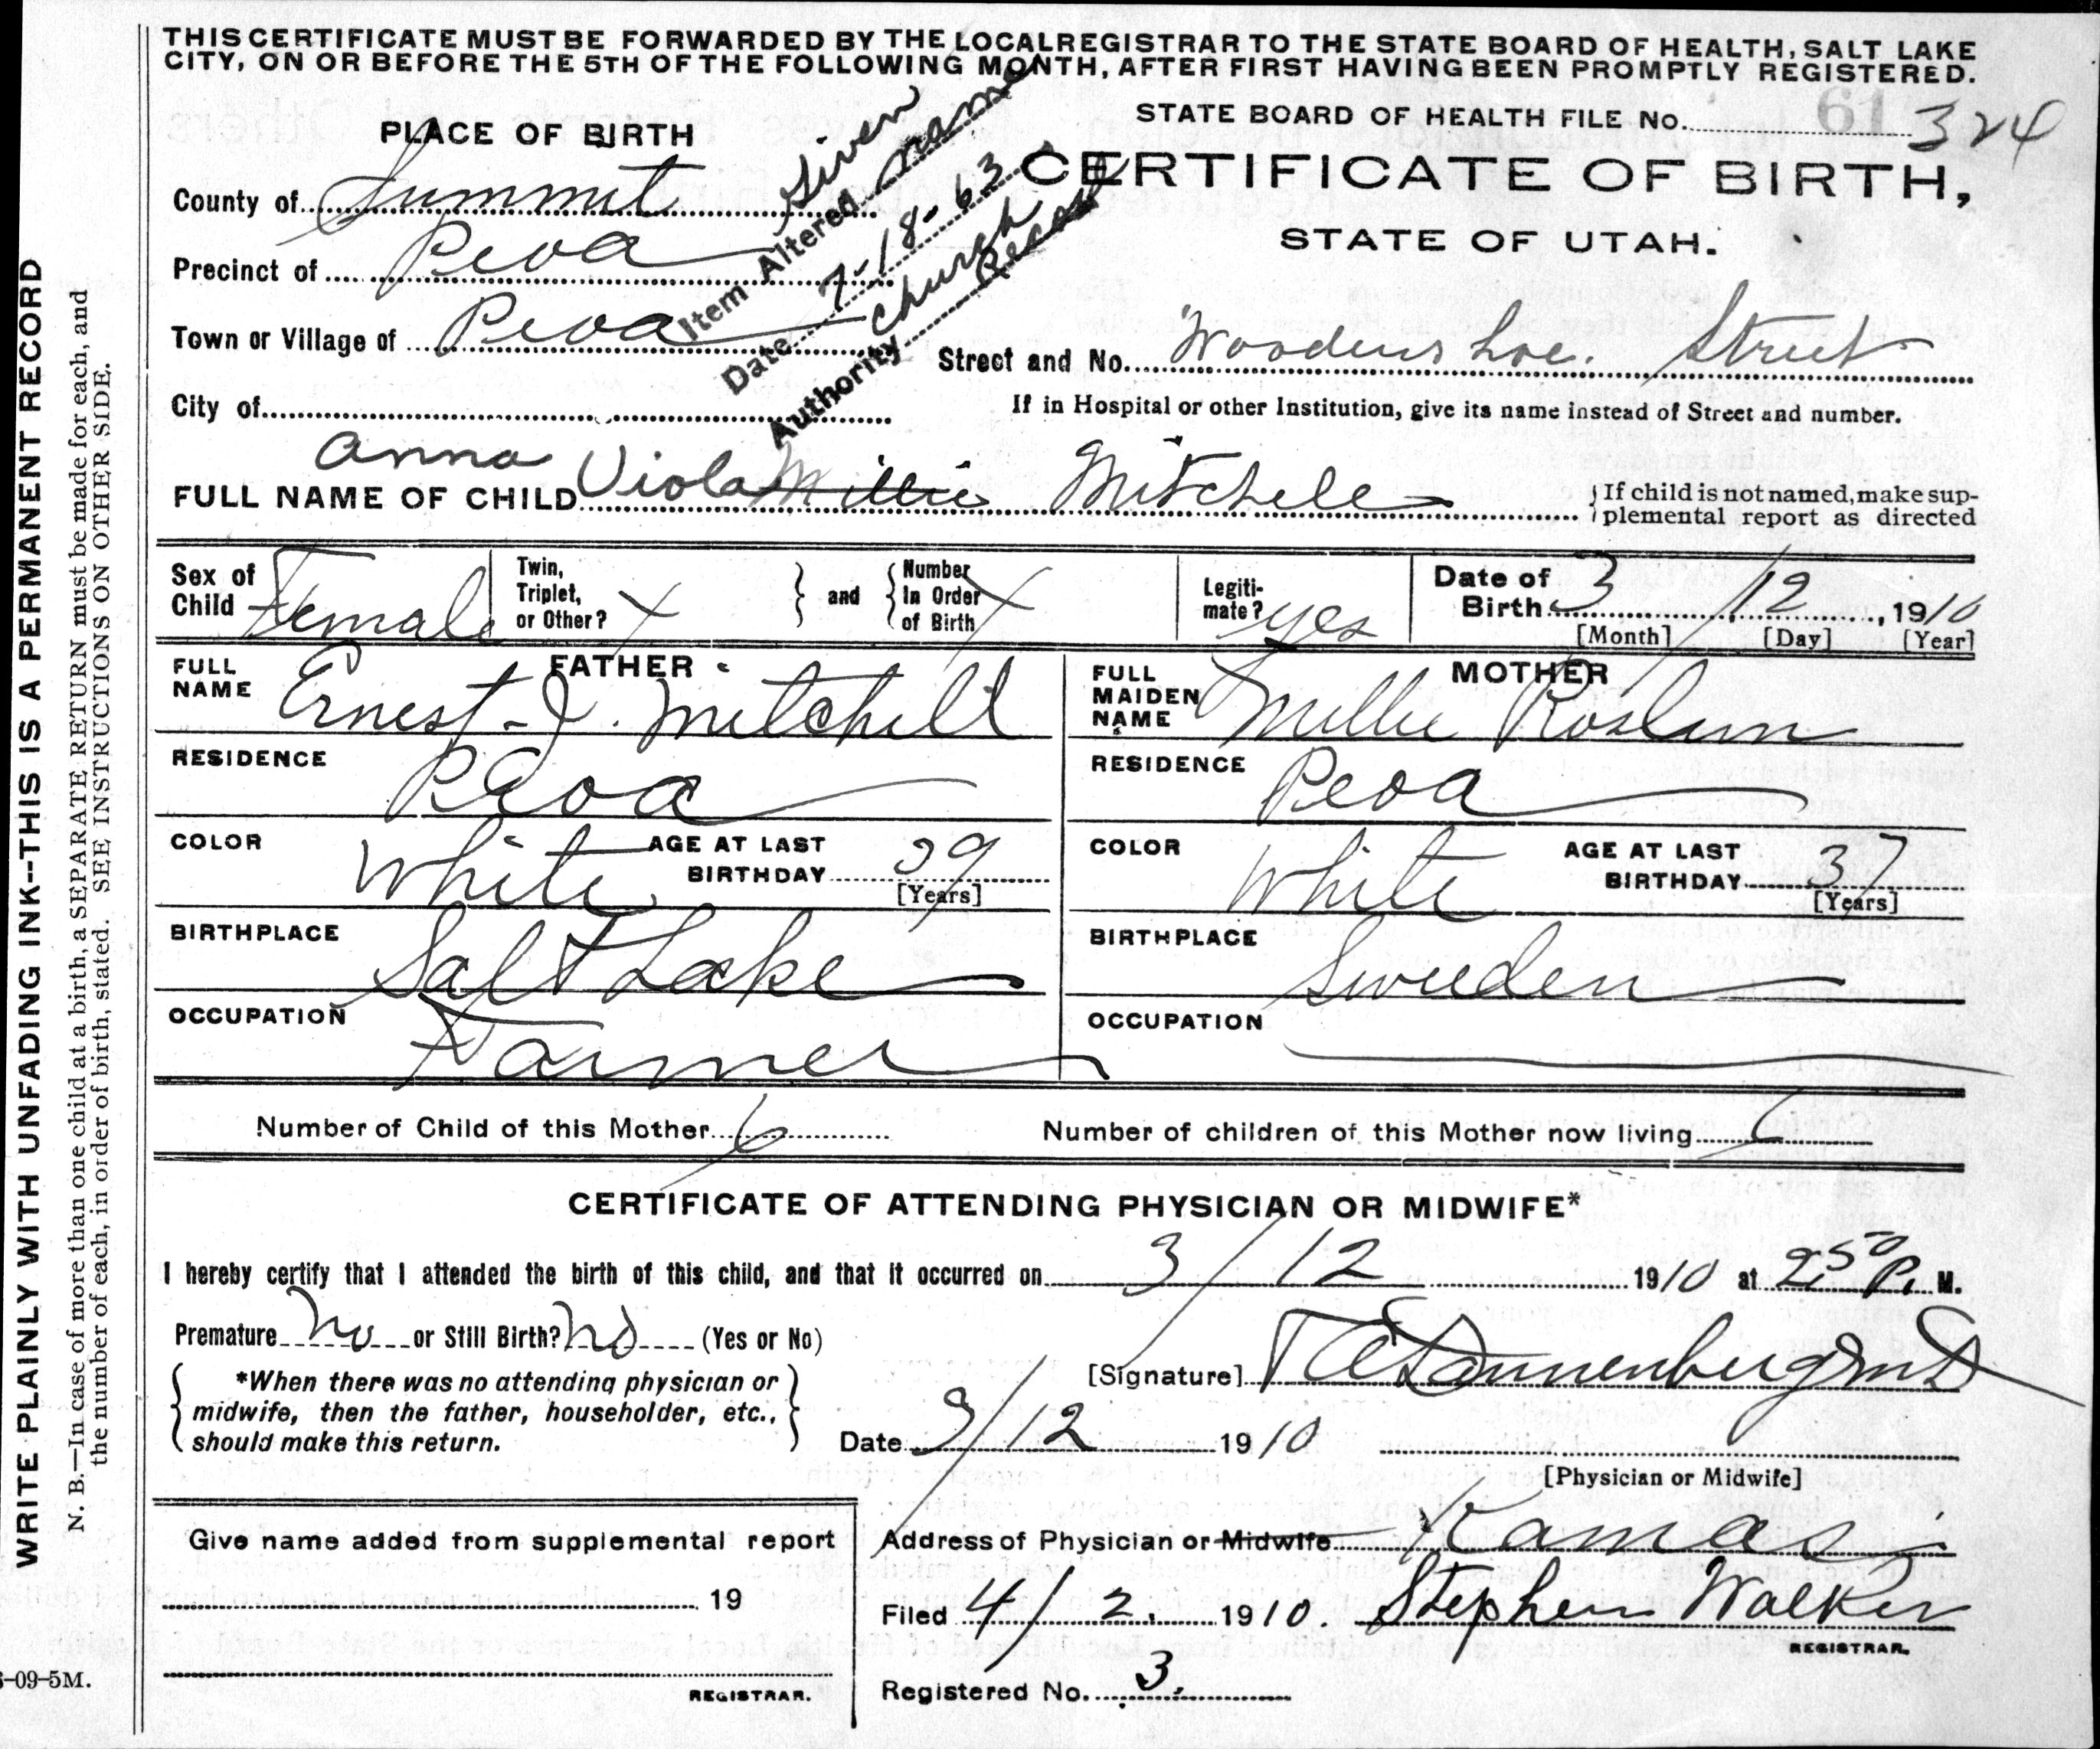 THIS CERTIFICATE MUST BE FORWARDED BY THE LOCAL REGISTRAR TO THE STATE BOARD OF HEALTH, SALT LAKE
CITY, ON OR BEFORE THE 5TH OF THE FOLLOWING MONTH, AFTER FIRST HAVING BEEN PROMPTLY REGISTERED.
STATE BOARD OF HEALTH FILE No. 61 324
PLACE OF BIRTH
CERTIFICATE OF BIRTH,
STATE OF UTAH.
County of Summit
Precinct of Peoa
Town or Village of Peoa
Street and No. Woodenshoe. Street
City of
If in Hospital or other Institution, give its name instead of Street and number.
Item Altered Given name
Date 7-18-63
Authority Church Record
Anna
FULL NAME OF CHILD Viola Millie Mitchell
If child is not named, make sup-
plemental report as directed
Sex of Child Female
Twin, Triplet, or Other? X
and
Number In Order of Birth X
Legiti-
mate? yes
Date of Birth 3 / 12, 1910
[Month] [Day] [Year]
FATHER
FULL NAME Ernest J. Mitchell
RESIDENCE Peoa
COLOR White AGE AT LAST BIRTHDAY 39
[Years]
BIRTHPLACE Salt Lake
OCCUPATION Farmer
MOTHER
FULL MAIDEN NAME Millie Roslun
RESIDENCE Peoa
COLOR White AGE AT LAST BIRTHDAY 37
[Years]
BIRTHPLACE Sweeden
OCCUPATION
Number of Child of this Mother 6
Number of children of this Mother now living 6
CERTIFICATE OF ATTENDING PHYSICIAN OR MIDWIFE*
I hereby certify that I attended the birth of this child, and that it occurred on 3/12 1910 at 2 50 P. M.
Premature no or Still Birth? no (Yes or No)
*When there was no attending physician or
midwife, then the father, householder, etc.,
should make this return.
[Signature] Dannenberg MD
Date 3/12 1910
[Physician or Midwife]
Give name added from supplemental report
19
REGISTRAR.
Address of Physician or Midwife Kamas
Filed 4/2. 1910. Stephen Walker
REGISTRAR.
Registered No. 3.
WRITE PLAINLY WITH UNFADING INK--THIS IS A PERMANENT RECORD
N. B.—In case of more than one child at a birth, a SEPARATE RETURN must be made for each, and
the number of each, in order of birth, stated. SEE INSTRUCTIONS ON OTHER SIDE.
-09-5M.